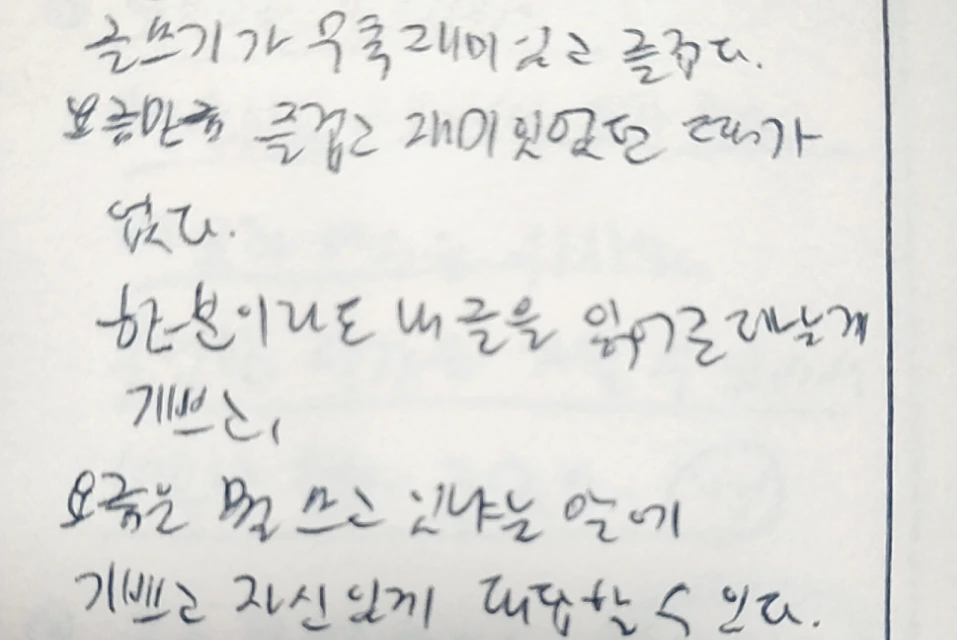 글쓰기가 무척 재미있고 즐겁다.
요즘만큼 즐겁고 재미있었던 때가
없다.
한분이라도 내 글을 읽어준다는게
기쁘고,
요즘은 뭘 쓰고 있냐는 말에
기쁘고 자신있게 대답할 수 있다.